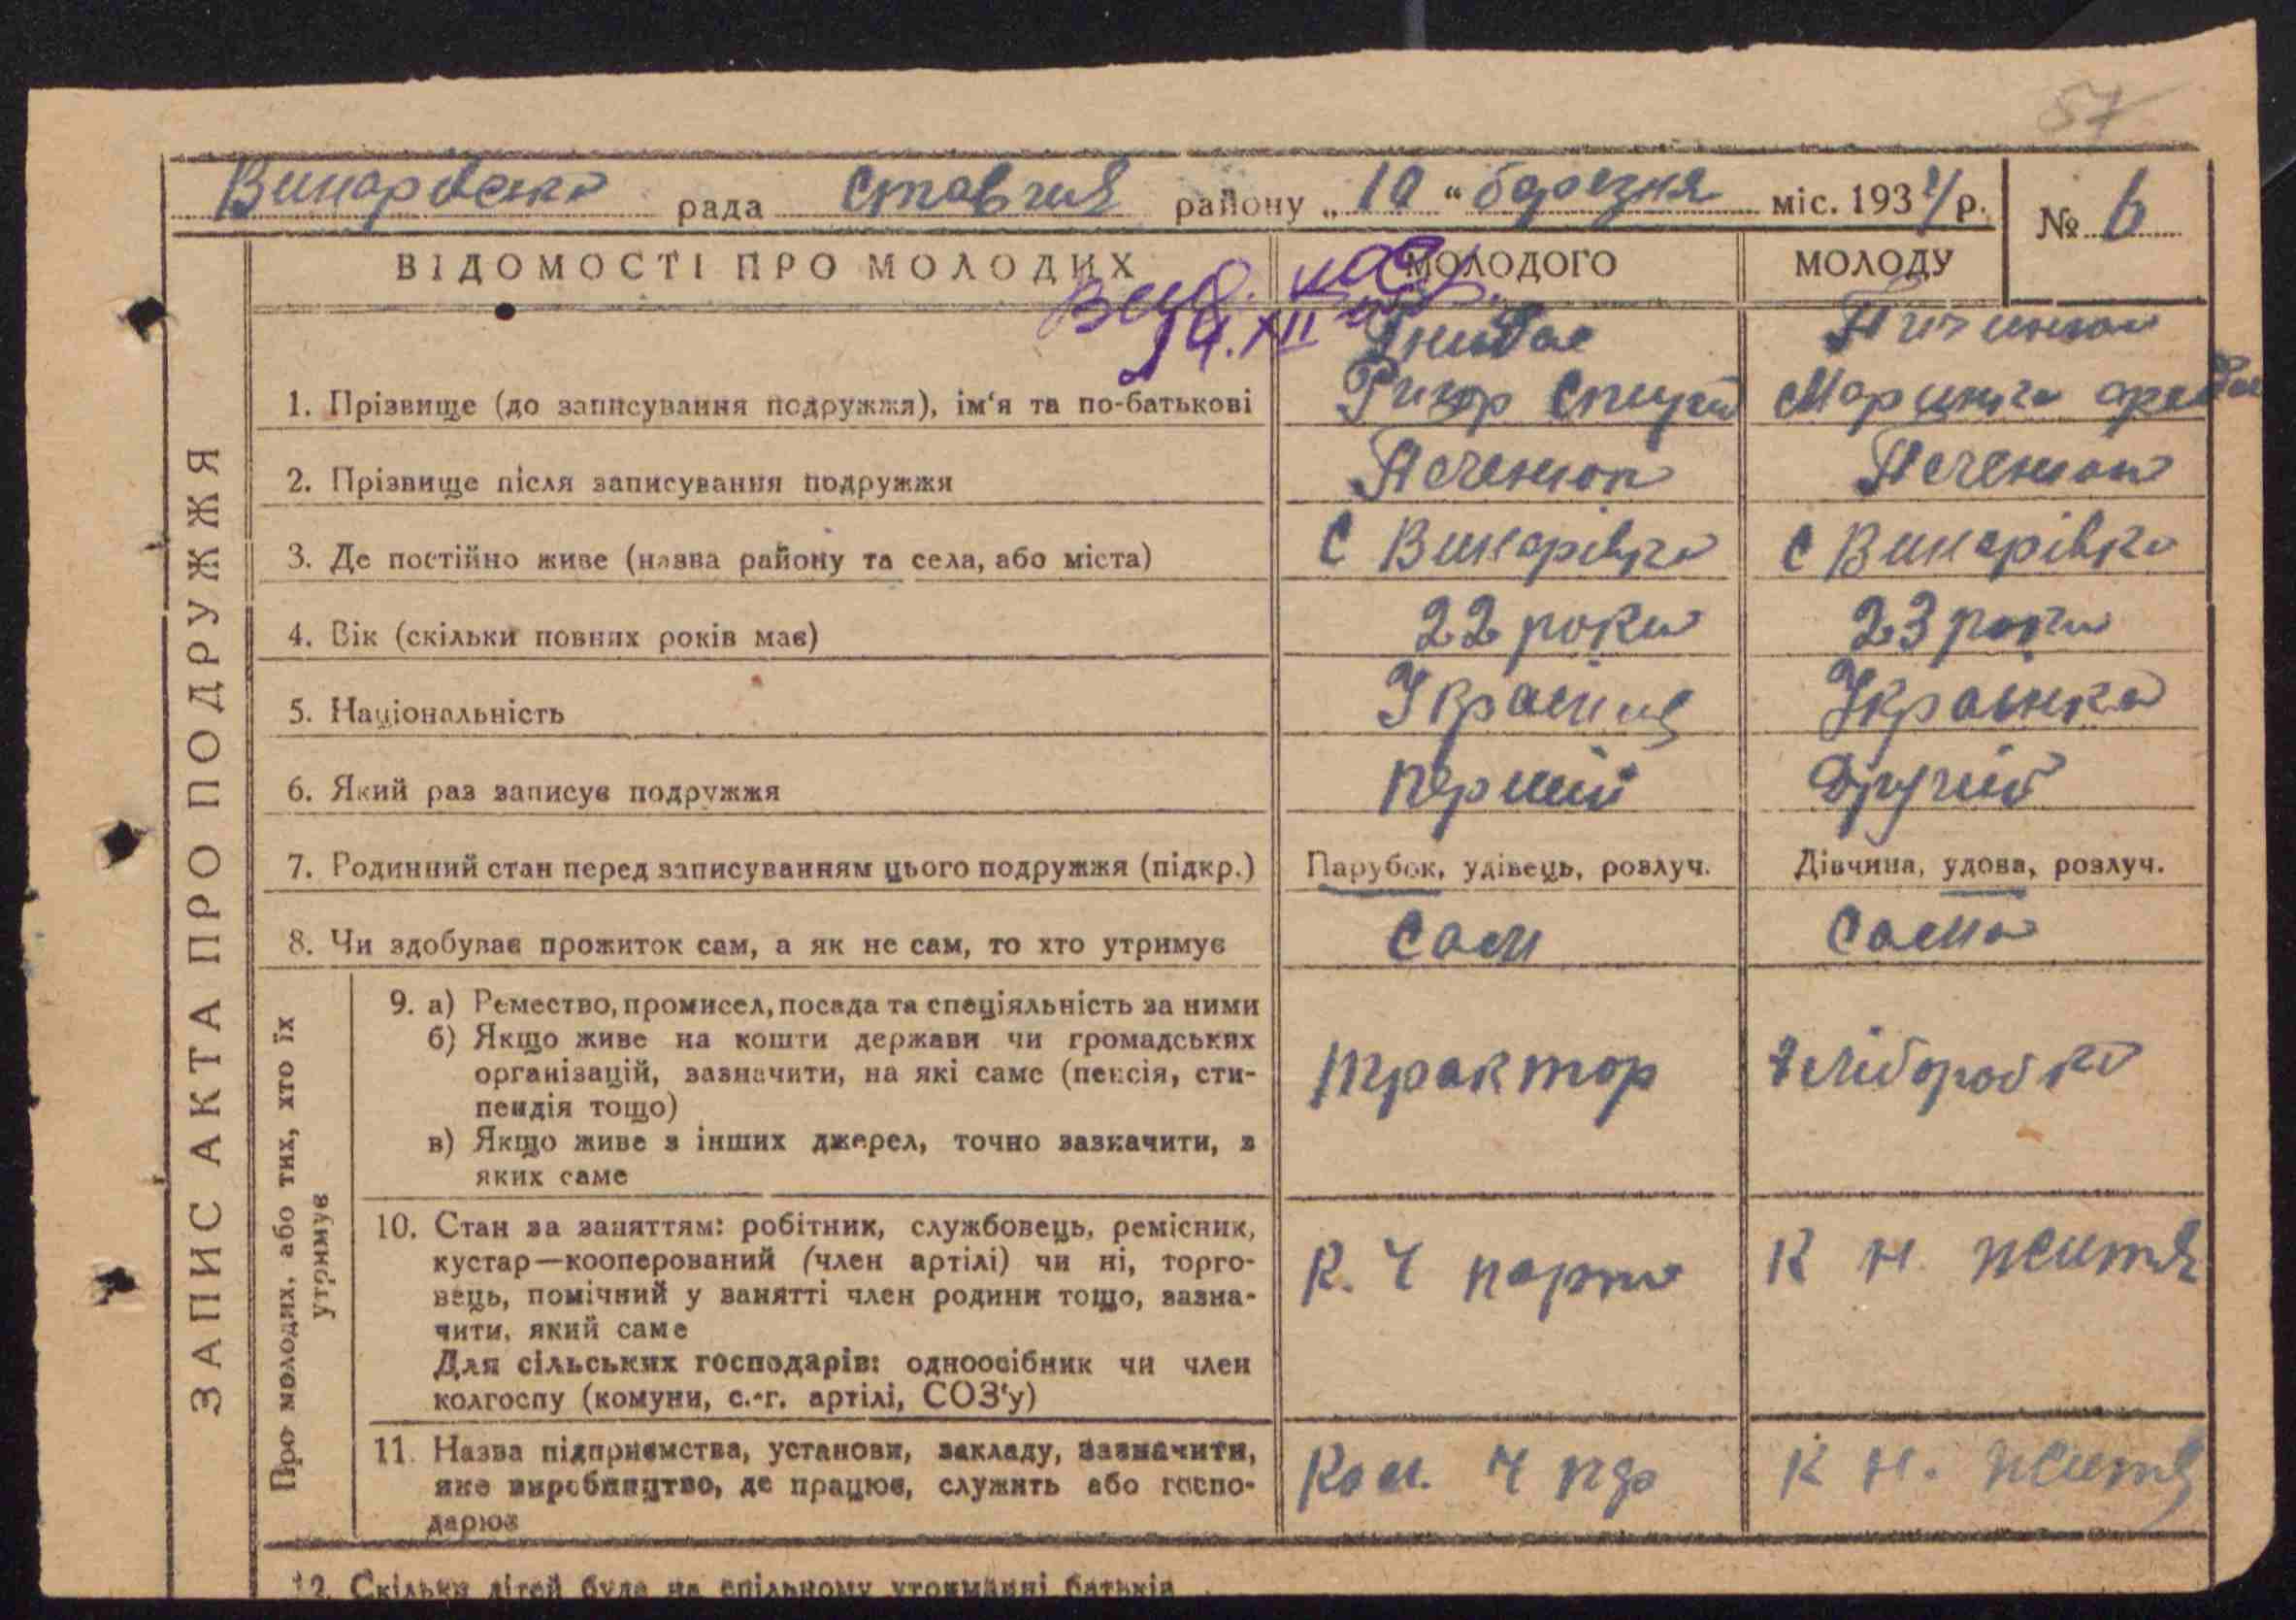 57
Винарівська рада Ставищ району „10“ березня міс. 193 р. № 6
ЗАПИС АКТА ПРО ПОДРУЖЖЯ
ВІДОМОСТІ ПРО МОЛОДИХ МОЛОДОГО МОЛОДУ
14.XII
1. Прізвище (до записування подружжя), ім‘я та по-батькові
2. Прізвище після записування подружжя
3. Де постійно живе (назва району та села, або міста) С Винарівка С Винарівка
4. Вік (скільки повних років має) 22 роки 23 роки
5. Національність Українец Українка
6. Який раз записує подружжя перший другий
7. Родинний стан перед записуванням цього подружжя (підкр.) Парубок, удівець, розлуч. Дівчина, удова, розлуч.
8. Чи здобуває прожиток сам, а як не сам, то хто утримує Сам Сама
Про молодих, або тих, хто їх
утримує
9. а) Ремество, промисел, посада та спеціяльність за ними
б) Якщо живе на кошти держави чи громадських
організацій, зазначити, на які саме (пенсія, сти-
пендія тощо) трактор хліборобка
в) Якщо живе з інших джерел, точно зазначити, з
яких саме
10. Стан за заняттям: робітник, службовець, ремісник,
кустар—кооперований (член артілі) чи ні, торго-
вець, помічний у занятті член родини тощо, зазна- К. Ч К Н. життя
чити, який саме
Для сільських господарів: одноосібник чи член
колгоспу (комуни, с.-г. артілі, СОЗ‘у)
11. Назва підприємства, установи, закладу, зазначити,
яке виробництво, де працює, служить або госпо- Ком. Ч К Н. життя
дарює
12. Скільки дітей буде на спільному утриманні батьків